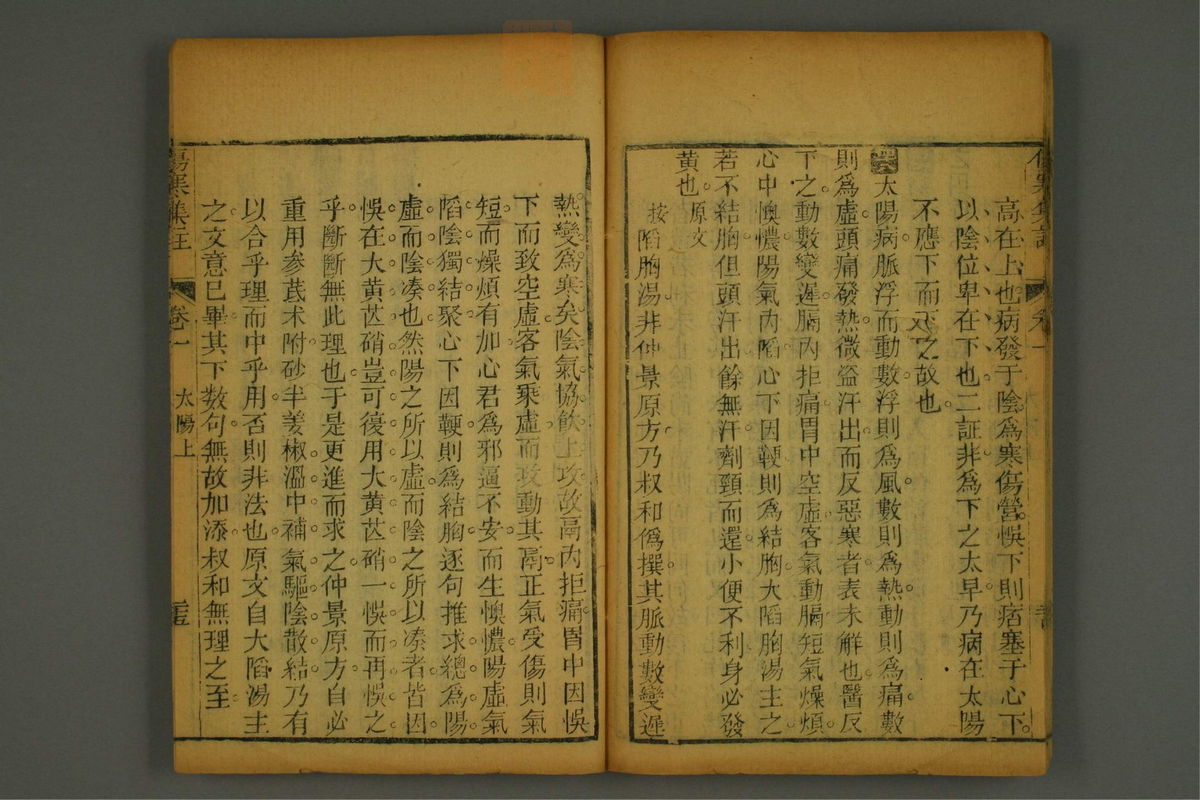 高在上也病發于陰為寒傷營悞下則痞塞于心下
以陰位卑在下也二証非為下之太早乃病在太陽
不應下而下之故也
太陽病脈浮而動數浮則為風數則為熱動則為痛數
則為虛頭痛發熱微盜汗出而反惡寒者表未解也醫反
下之動數變遲膈內拒痛胃中空虛客氣動膈短氣燥煩
心中懊憹陽氣內陷心下因鞕則為結胸大陷胸湯主之
若不結胸但頭汗出餘無汗劑頸而還小便不利身必發
黃也 原文
按陷胸湯非仲景原方乃叔和偽撰其脈動數變遲
熱變為寒矣陰氣協飲上攻故膈內拒痛胃中因悞
下而致空虛客氣乘虛而攻動其膈正氣受傷則氣
短而燥煩有加心君為邪逼不安而生懊憹陽虛氣
陷陰獨結聚心下因鞕則為結胸逐句推求總為陽
虛而陰凑也然陽之所以虛而陰之所以凑者皆因
悞在大黃芒硝豈可復用大黃芒硝一悞而再悞之
乎斷斷無此理也于是更進而求之仲景原方自必
重用參芪朮附砂半姜椒溫中補氣驅陰散結乃有
以合乎理而中乎用否則非法也原文自大陷湯主
之文意已畢其下数句無故加添叔和無理之至
傷寒集註 卷一 太陽上